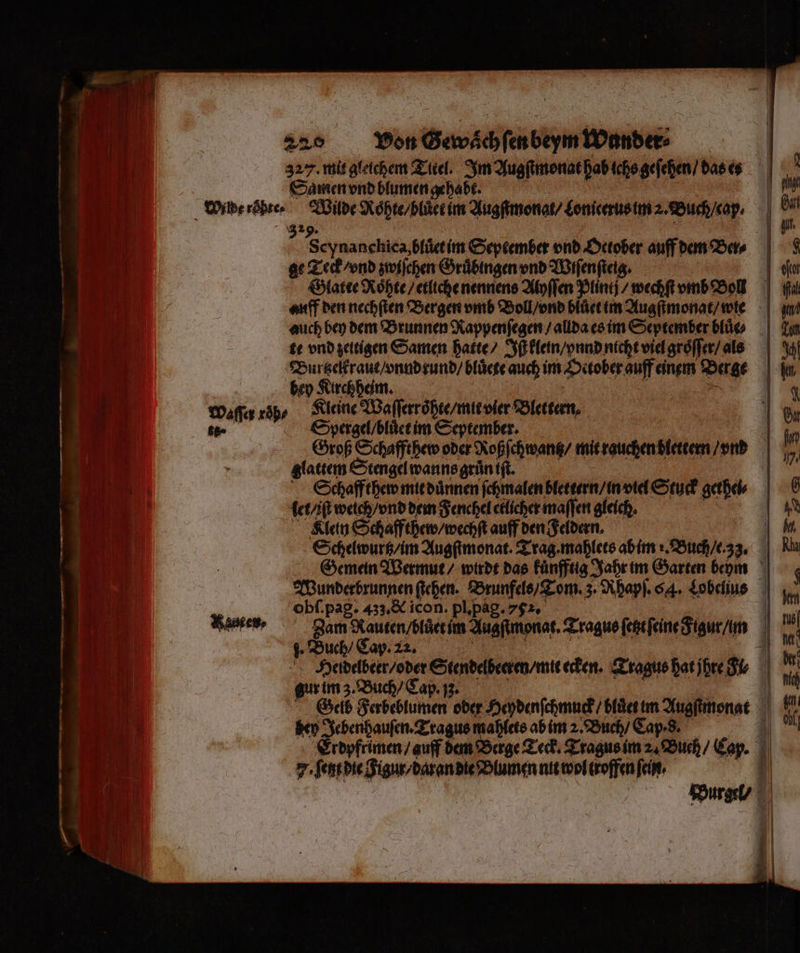 220 Von Gewåchſen beym Wunder⸗
327. mit gleichem Titel. Im Augſtmonat hab ichs geſehen/ das es
Samen vnd blumen gehabt.
Wilde röhte⸗ Wilde Röhte/blůet im Augſtmonat/ Lonicerus im 2. Buch/cap.
329.
Scynanchica, blůet im September vnd October auff dem Ber⸗
ge Teck/vnd zwiſchen Grůbingen vnd Wiſenſteig.
Glatte Röhte/etliche nennens Alyſſen Plinij/ wechſt vmb Boll
auff den nechſten Bergen vmb Boll/vnd blůet im Augſtmonat/ wie
auch bey dem Brunnen Rappenſegen / allda es im September blůe⸗
te vnd zeitigen Samen hatte/ Iſt klein/vnnd nicht viel gröſſer/ als
Burtzelkraut/vnnd rund/ blůete auch im October auff einem Berge
bey Kirchheim.
Waſſer röh⸗ Kleine Waſſerröhte/mit vier Blettern.
te⸗ Spergel/blůet im September.
Groß Schaffthew oder Roßſchwantz/ mit rauchen blettern / vnd
glattem Stengel wanns grůn iſt.
Schaffthew mit důnnen ſchmalen blettern/in viel Stuck gethei⸗
let/iſt weich/vnd dem Fenchel etlicher maſſen gleich.
Klein Schaffthew/wechſt auff den Feldern.
Schelwurtz/im Augſtmonat. Trag. mahlets ab im 1. Buch/c.33.
Gemein Wermut/ wirdt das kůnfftig Jahr im Garten beym
Wunderbrunnen ſtehen. Brunfels/Tom. 3. Rhapſ. 64. Lobelius
obſ. pag. 433. & icon. pl. pag. 752.
Rauten⸗ Zam Rauten/blůet im Augſtmonat. Tragus ſetzt ſeine Figur/im
1. Buch/ Cap. 22.
Heidelbeer/oder Stendelbeeren/mit ecken. Tragus hat jhre Fi⸗
gur im 3. Buch/ Cap. 13.
Gelb Ferbeblumen oder Heydenſchmuck/ blůet im Augſtmonat
bey Jebenhauſen. Tragus mahlets ab im 2. Buch/ Cap.8.
Erdpfrimen / auff dem Berge Teck. Tragus im 2. Buch / Cap.
7. ſetzt die Figur/daran die Blumen nit wol troffen ſein.
Burgel/